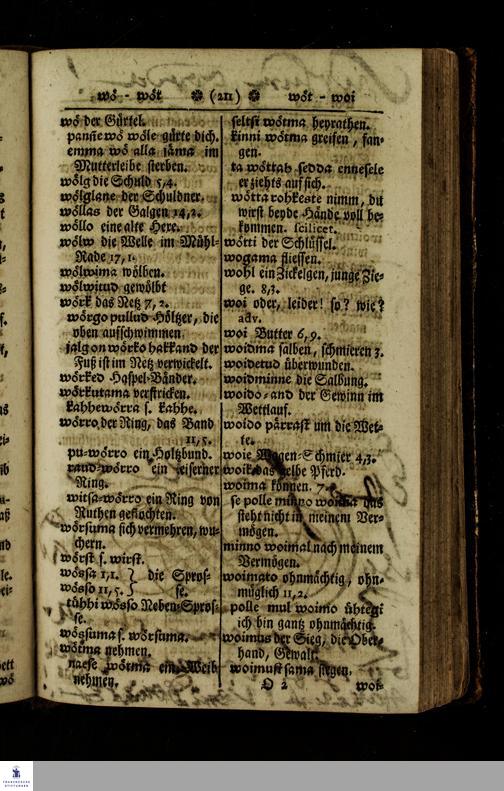 wö - wöt ❁ (211) ❁ wöt - woi
wö der Gürtel.
panne wö wöle gürte dich.
emma wö alla jäma im
Mutterleibe sterben.
wölg die Schuld 5,4.
wölglane der Schuldner.
wöllas der Galgen 14,2.
wöllo eine alte Hexe.
wölw die Welle im Mühl-
Rade 17,1.
wölwima wölben.
wölwitud gewölbt
wörk das Netz 7,2.
wörgo pullud Höltzer, die
oben aufschwimmen.
jalg on wörko hakkand der
Fuß ist im Netz verwickelt.
wörked Haspel-Bänder.
wörkutama verstricken.
kahhewörra s. kahhe.
wörro, der Ring, das Band
11,5.
pu-wörro ein Holtzbund.
raud-wörro ein eiserner
Ring.
witsa-wörro ein Ring von
Ruthen geflochten.
wörsuma sich vermehren, wu-
chern.
wörst s. wirst.
wössa 1,1. } die Spros-
wösso 11,5. } se.
tühhi wösso Neben-Spros-
se.
wössuma s. wörsuma.
wötma nehmen.
naese wötma ein Weib
nehmen.
seltsi wötma heyrathen.
kinni wötma greifen, fan-
gen.
ta wöttab sedda ennesele
er ziehts auf sich.
wötta rohkeste nimm, du
wirst beyde Hände voll be-
kommen. scilicet.
wötti der Schlüssel.
wogama fliessen.
wohl ein Zickelgen, junge Zie-
ge. 8,3.
woi oder, leider! so? wie?
adv.
woi Butter 6,9.
woidma salben, schmieren 3.
woidetud überwunden.
woidminne die Salbung.
woido-and der Gewinn im
Wettlauf.
woido pärrast um die Wet-
te.
woie Wagen-Schmier 4,3.
woik das gelbe Pferd.
woima können. 7.
se polle minno woima das
steht nicht in meinem Ver-
mögen.
minno woimal nach meinem
Vermögen.
woimato ohnmächtig, ohn-
müglich 11,2.
polle mul woimo ühtegi
ich bin gantz ohnmächtig.
woimus der Sieg, die Ober-
hand, Gewalt.
woimust sama siegen.
O 2 woi-
FRANCKESCHE
STIFTUNGEN